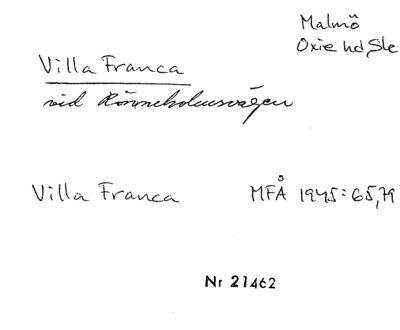 Malmö
Oxie hd, Sk
Villa Franca
vid Rönneholmsvägen
Villa Franca MFÅ 1945:65,79
Nr 21462